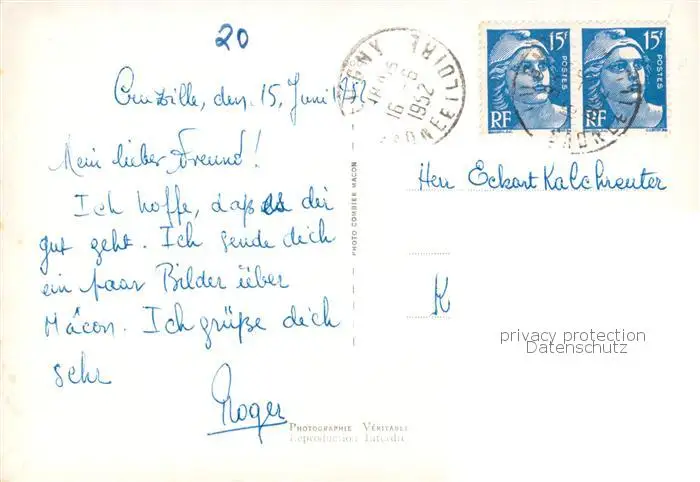 20
Cruzille, den 15. Juni 1952
Mein lieber Freund!
Ich hoffe, daß es dir
gut geht. Ich sende dich
ein paar Bilder über
Mâcon. Ich grüße dich
sehr
Roger
PHOTOGRAPHIE VÉRITABLE
Reproduction Interdite
PHOTO COMBIER MACON
18H
16 - 6
1952
SAONE ET LOIRE
15F
POSTES
RF
15F
POSTES
RF
Herr Eckart Kalchreuter
K
privacy protection
Datenschutz